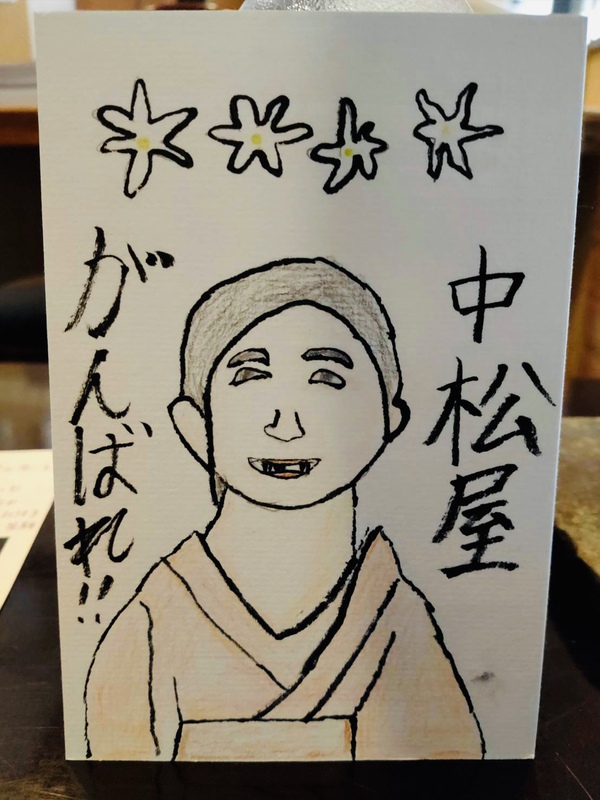 中松屋
がんばれ!!